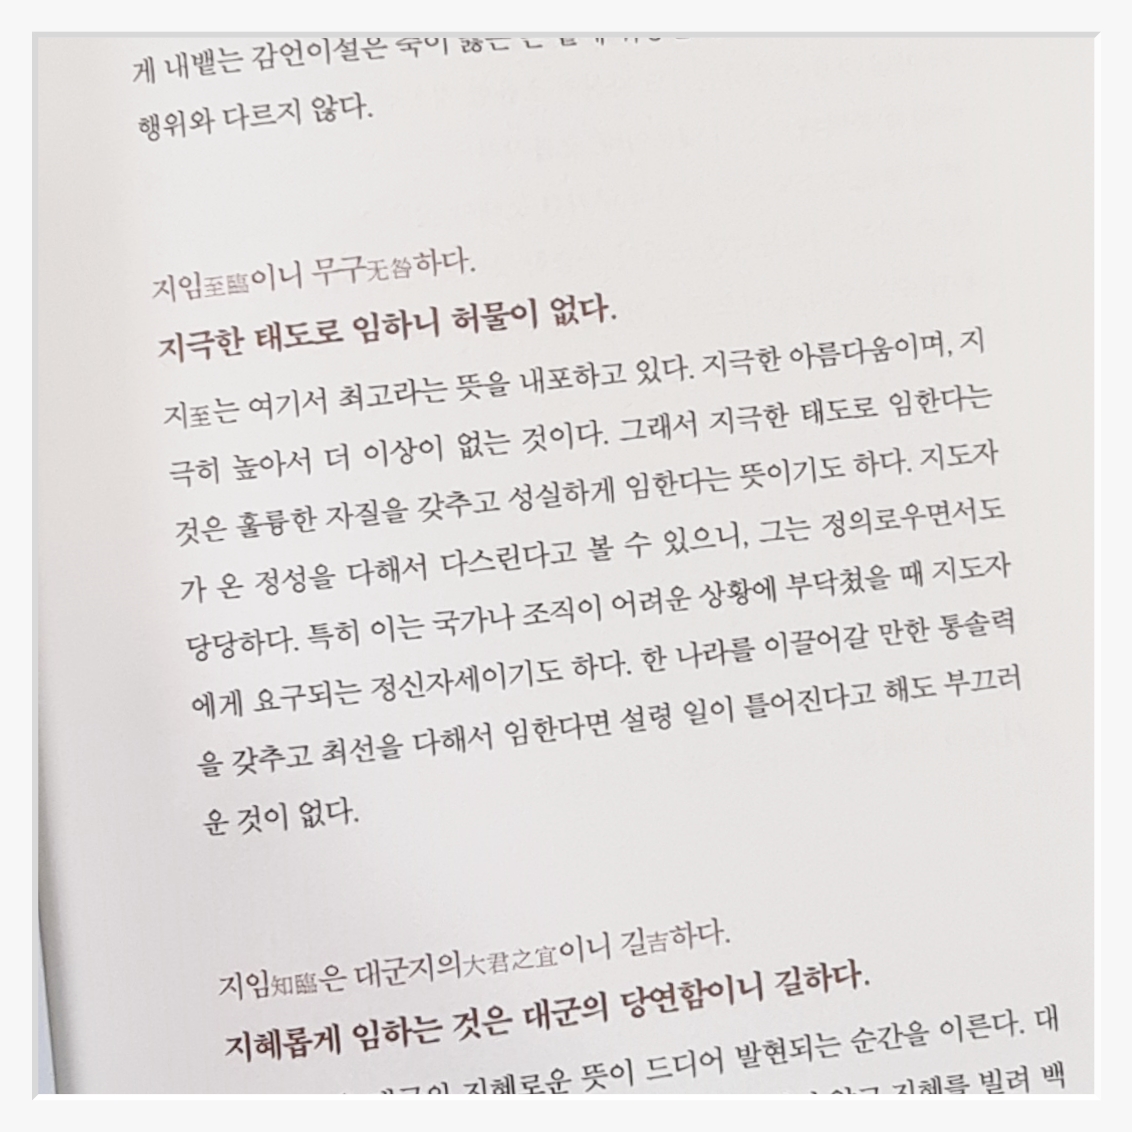 게 내뱉는 감언이설은 죽이
행위와 다르지 않다.
지임至臨이니 무구无咎하다.
지극한 태도로 임하니 허물이 없다.
지至는 여기서 최고라는 뜻을 내포하고 있다. 지극한 아름다움이며, 지
극히 높아서 더 이상이 없는 것이다. 그래서 지극한 태도로 임한다는
것은 훌륭한 자질을 갖추고 성실하게 임한다는 뜻이기도 하다. 지도자
가 온 정성을 다해서 다스린다고 볼 수 있으니, 그는 정의로우면서도
당당하다. 특히 이는 국가나 조직이 어려운 상황에 부닥쳤을 때 지도자
에게 요구되는 정신자세이기도 하다. 한 나라를 이끌어갈 만한 통솔력
을 갖추고 최선을 다해서 임한다면 설령 일이 틀어진다고 해도 부끄러
운 것이 없다.
지임知臨은 대군지의大君之宜이니 길吉하다.
지혜롭게 임하는 것은 대군의 당연함이니 길하다.
지혜로운 뜻이 드디어 발현되는 순간을 이른다. 대
지혜를 빌려 백